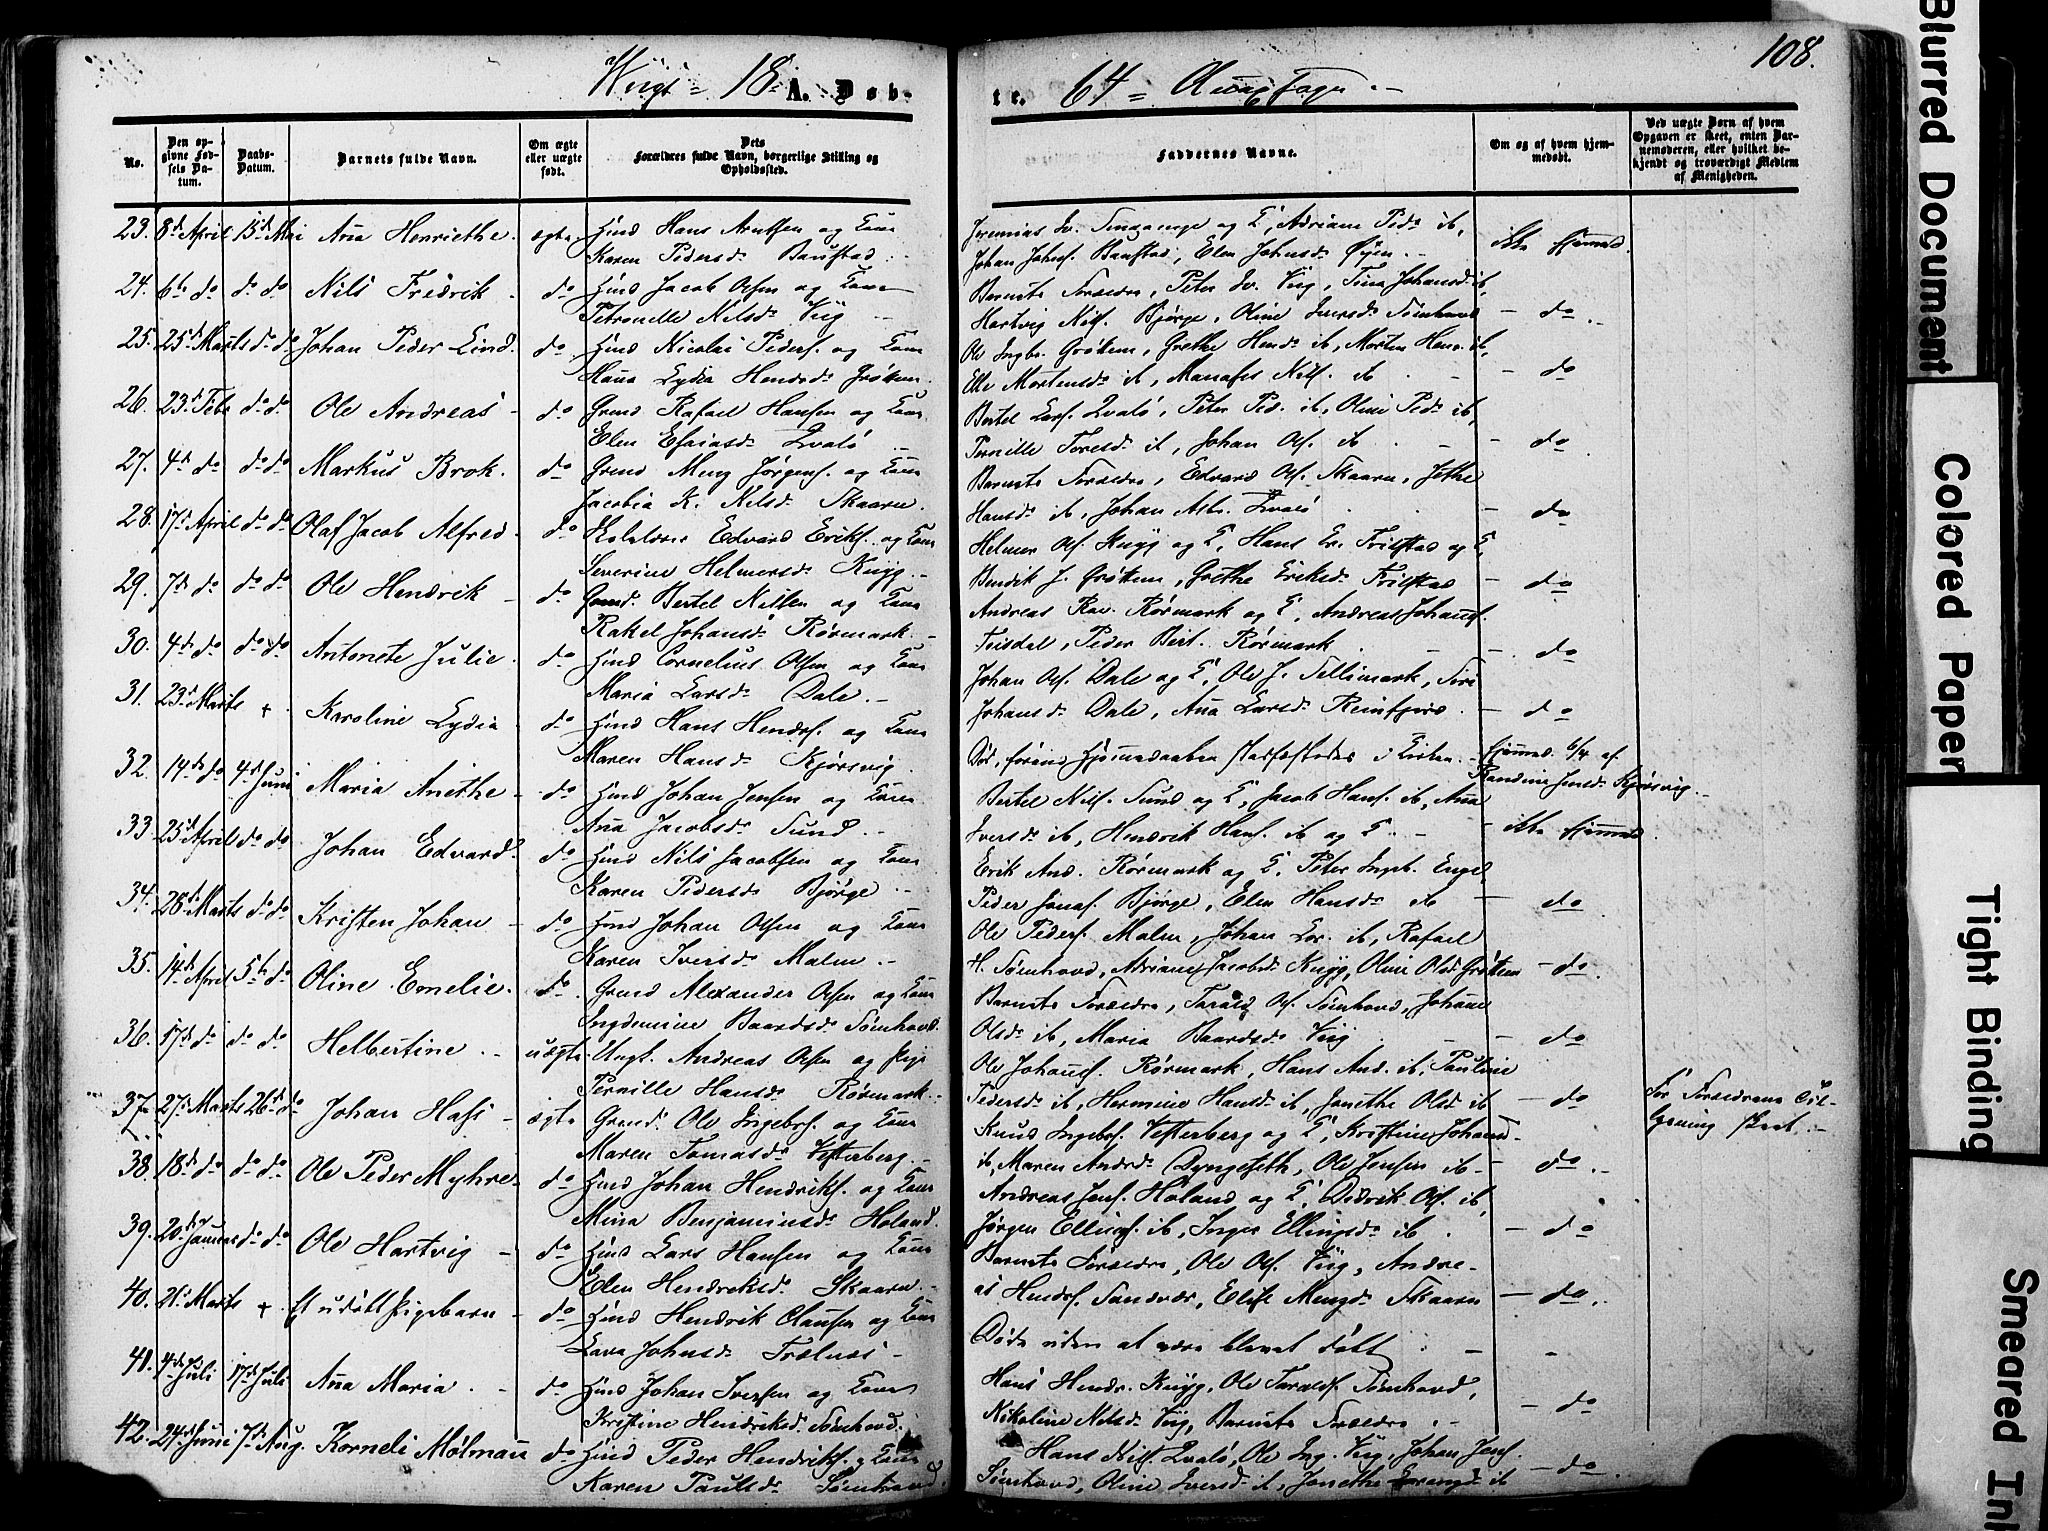 108.
Viigs 18 A. Døb-
te. 64 Annex Sogn
No.
Den op-
givne Fød-
sels Da-
tum.
Daabs-
Datum.
Barnets fulde Navn.
Om ægte
eller uægte
født.
Dets
Forældres fulde Navn, borgerlige Stilling og
Opholdssted.
Faddernes Navne.
Om og af hvem hjem-
medøbt.
Ved uægte Børn af hvem
Opgaven er skeet, enten Bar-
nemoderen, eller hvilket be-
kjendt og troværdigt Medlem
af Menigheden.
23. 8d April 15d Mai Aña Henriethe. ægte Hmd Hans Arntsen og Kone
Karen Pedersdr Baustad
Johan Johns. Baustad, Elen Johnsdr Øyen. ikke hjemmed.
24. 6te do do do Nils Fredrik do Hmd Jacob Olsen og Kone
Petronelle Nilsdr Viig
Barnets Forældre, Peter Iv. Viig, Tina Johansd ib,
Hartvig Nils. Bjørge, Oline Iversdr Sømhovd - do.
25. 25d Marts do do Johan Peder Lind. do Hmd Nicolai Peders. og Kone
Haña Lydia Hendsdr Grøtem.
Ole Ingbr. Grøtem, Grethe Hendsdr ib, Morten Henr. ib,
Elle Mortensdr ib, Manases Nils. ib - do
26. 23d Febr do do Ole Andreas do Grmd Rafael Hansen og Kone
Elen Esaiasdr Qvalø
Bertel Lars. Qvalø, Peter Ped. ib, Oline Pedr ib,
Pernille Toresdr ib, Johan Ols. ib - do
27. 4d do do do Markus Brok. do Grmd Meng Jørgens. og Kone
Jacobia K. Nilsdr Skaaren.
Barnets Forældre, Edvard Ols. Skaaren, Jethe
Hansdr ib, Johan Asbr. Qvalø - do
28. 17d April do do Olaf Jacob Alfred do Skolelærer Edvard Eriks. og Kone
Severine Helmersdr Kniyg.
Helmer Ols. Kniyg og K, Hans Er. Frilstad og K,
Bendik J. Grøtem, Grethe Eriksdr Frilstad - do
29. 7d do do do Ole Hendrik do Grmd. Bertel Nilsen og Kone
Rakel Johansdr Rørmark.
Andreas Raf. Rørmark og K, Andreas Johans.
Teisdal, Peder Bert. Rørmark - do
30. 4de do do do Antonete Julie. do Hmd Cornelius Olsen og Kone
Maria Larsdr Dale.
Johan Ols. Dale og K, Ole J. Sellimark, Siri
Johansdr Dale, Aña Larsdr Reinfjord. - do
31. 23d Marts + Karoline Lydia do Hmd Hans Hends. og Kone
Maren Hansdr Kjørsvig
Død, førend Hjemmedaaben stadfæstedes i Kirken. Hjemmed. 6/4 af
Randine Jensdr Kjørsvig.
32. 14de do 4d Juni Maria Anethe do Hmd Johan Jensen og Kone
Aña Jacobsdr Sund.
Bertel Nils. Sund og K, Jacob Hans. ib, Aña
Iversdr ib, Hendrik Hans. ib og K. - ikke hjemmed.
33. 25d April do do Johan Edvard do Hmd Nils Jacobsen og Kone
Karen Pedersdr Bjørge
Erik And. Rørmark og K, Peter Ingeb. Enge,
Peder Jonas. Bjørge, Elen Hansdr ib - do
34. 28d Marts do do Kristen Johan do Hmd Johan Olsen og Kone
Karen Iversdr Malm.
Ole Peders. Malm, Johan Lor. ib, Rafael
H. Sømhovd, Adriane Jacobsdr Kniyg, Oline Olsdr Grøtem - do.
35. 14de April 5te do Oline Emelie. do. Grmd Alexander Olsen og Kone
Ingdemine Baardsdr Sømhovd.
Barnets Forældre, Tarald Ols. Sømhovd, Johane
Olsdr ib, Maria Baardsdr Viig - do
36. 17d do do do Helbertine. uægte Ungk. Andreas Olsen og Pige
Pernille Hansdr Rørmark.
Ole Johans. Rørmark, Hans And. ib, Pauline
Pedersdr ib, Hermine Hansdr ib, Jonethe Olsd ib - do For Forældrene Op-
lysning skeet.
37. 27d Marts 26d do Johan Hass ægte Grmd. Ole Ingebrs. og Kone
Maren Tomasdr Vesterberg.
Knud Ingebrs. Vesterberg og K, Kristine Johansd
ib, Maren Andrsdr Dyngeseth, Ole Jensen ib - do.
38. 18de do do do Ole Peder Myhre do Hmd Johan Hendriks. og Kone
Mina Benjaminsdr Høland.
Andreas Jens. Høland og K, Didrik Ols. ib,
Jørgen Ellings. ib, Inger Ellingsdr ib. - do
39. 20de Januar do do Ole Hartvig do Hmd Lars Hansen og Kone
Elen Hendriksdr Skaaren.
Barnets Forældre, Ole Ols. Viig, Andre-
as Hends. Sandvær, Elise Mengsdr Skaaren - do.
40. 21d Marts + Et udøbt Pigebarn do Hmd Hendrik Clausen og Kone
Lava Johnsdr Trælnæs
Døde uden at være blevet døbt
41. 4de Juli 17de Juli Aña Maria. do Hmd Johan Iversen og Kone
Kristine Hendriksd. Sømhovd.
Hans Hendr. Kniyg, Ole Taralds. Sømhovd,
Nikoline Nilsdr Viig, Barnets Forældre. - do
42. 24d Juni 7de Aug. Korneli Mølmañ do Hmd Peder Hendriks. og Kone
Karen Paulsdr Sømhovd
Hans Nils. Qvalø, Ole Ing. Viig, Johan Jens.
Sømhovd, Oline Iversdr ib, Jonethe ib - do.
Blurred Document
Colored Paper
Tight Binding
Smeared In